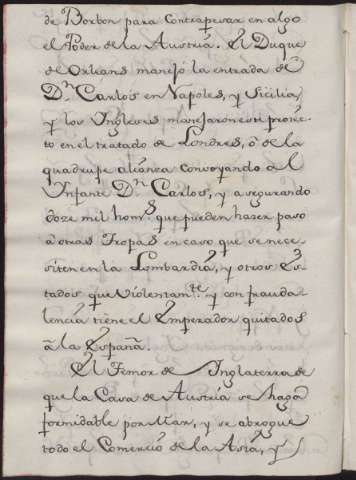 de Borbon para contrapesar en algo
el Poder de la Austria. El Duque
de Orleans manejò la entrada de
Dn Carlos en Napoles, y Sicilia
y los Yngleses manejaron este proiec-
to en el tratado de Londres, ò de la
quadruple alianza convoyando a l
Ynfante Dn Carlos, y asegurando
doze mil homs que pueden hazer paso
à otras Tropas en caso que se nece
siten en la Lombardia, y otros Es-
tados que violentamte y con frauda-
lencia tiene el Emperador quitados
à la España.
El Temor de Ynglaterra de
que la Casa de Austria se haga
formidable por Mar, y se abrogue
todo el Comercio de la Asia, y